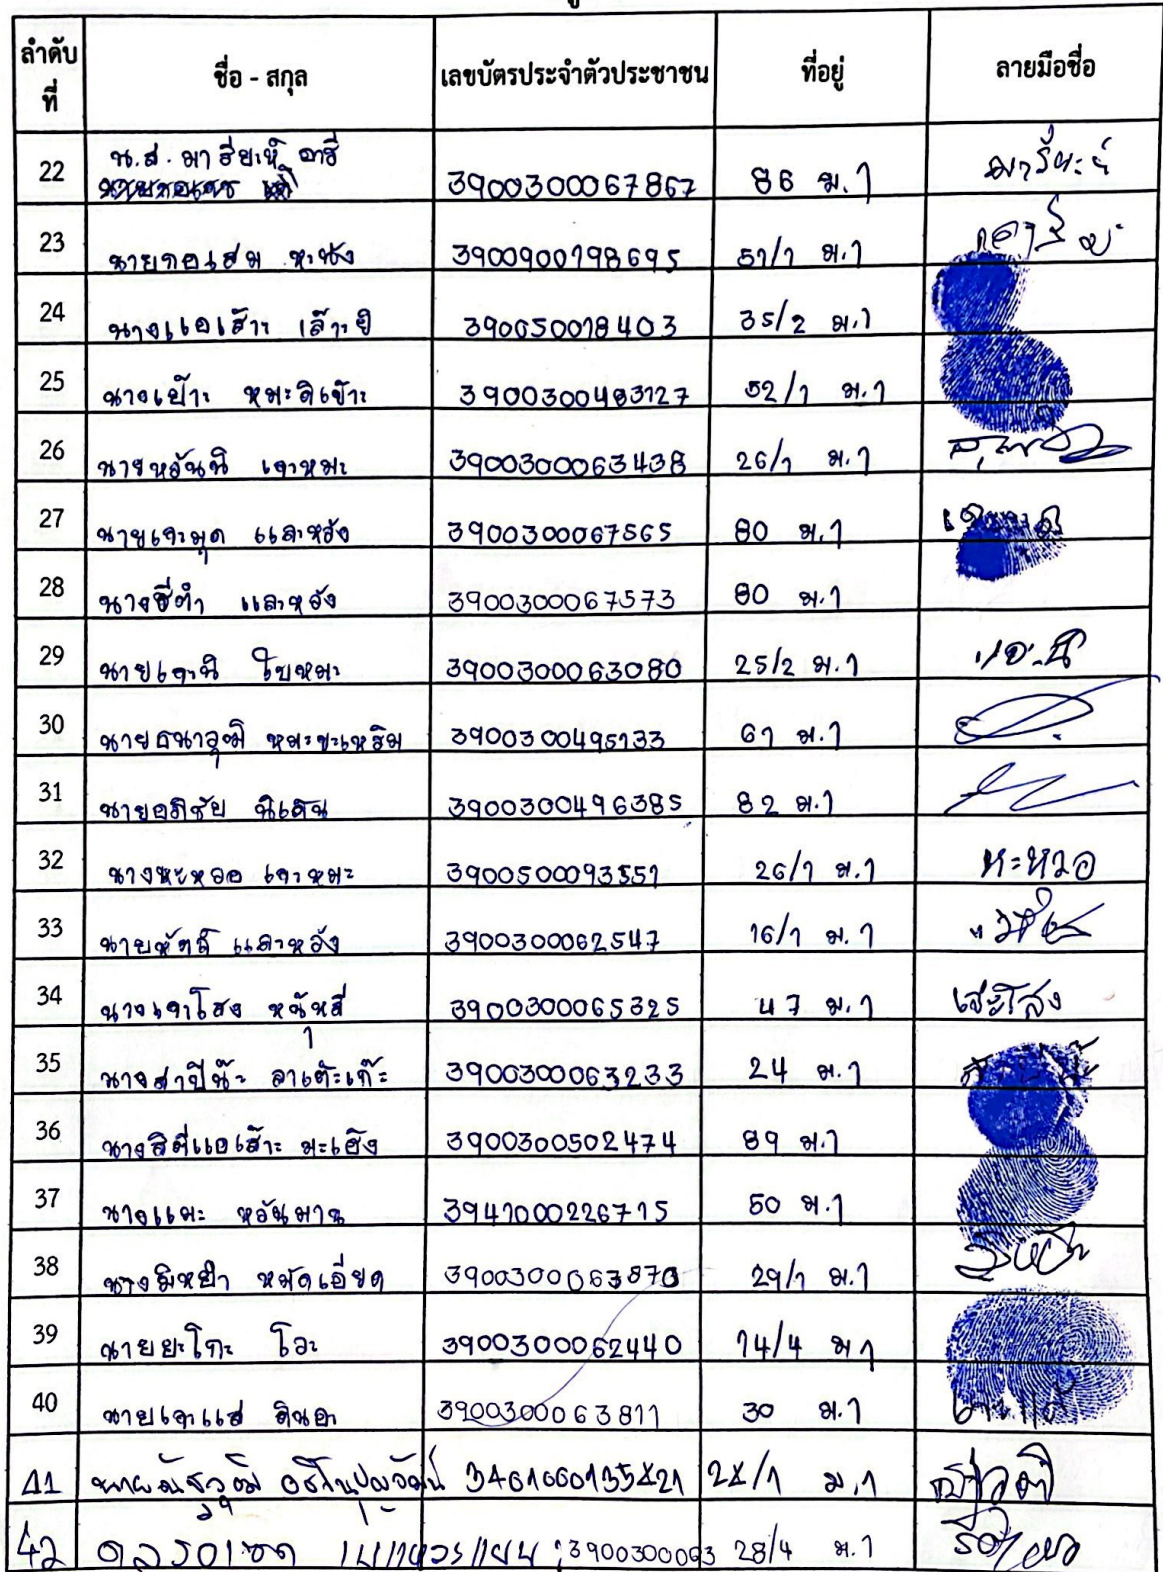 ลำดับที่ ชื่อ - สกุล เลขบัตรประจำตัวประชาชน ที่อยู่ ลายมือชื่อ
22 น.ส. มารียะห์ อารี 3900300067867 86 ม.1
23 นายกอเสม หะหัง 3900900198695 51/1 ม.1
24 นางแอเส้าะ เล๊าะยิ 390650018403 35/2 ม.1
25 นางเย๊าะ หมะดิเย๊าะ 3900300483127 52/1 ม.1
26 นายหวันนิ เจะหมะ 3900300063438 26/1 ม.1
27 นายเจะมุด และหวัง 3900300067565 80 ม.1
28 นางชีตำ และหวัง 3900300067573 80 ม.1
29 นายเจะนิ ใบหมะ 3900300063080 25/2 ม.1
30 นายธนาวุฒิ หมะขะเหร็ม 3900300495133 61 ม.1
31 นายอภิชัย นิเด็น 3900300496385 82 ม.1
32 นางหะหวอ เจะหมะ 3900500093551 26/1 ม.1 หะหวอ
33 นายหัตถ์ และหวัง 3900300062547 16/1 ม.1
34 นางเจะโสง หนิหลี 3900300065325 47 ม.1 เจะโสง
35 นางสาปีน๊ะ ลาเต๊ะเก๊ะ 3900300063233 24 ม.1
36 นางสิตีแอเส้าะ มะเฮ็ง 3900300502474 89 ม.1
37 นางแมะ หวันมาน 3941000226715 50 ม.1
38 นางมิหย๊ำ หมัดเอียด 3900300063870 29/1 ม.1
39 นายยะโกะ โวะ 3900300062440 14/4 ม.1
40 นายเจะแส ดินอะ 3900300063811 30 ม.1
41 28/1 ม.1
42 3900300063 28/4 ม.1